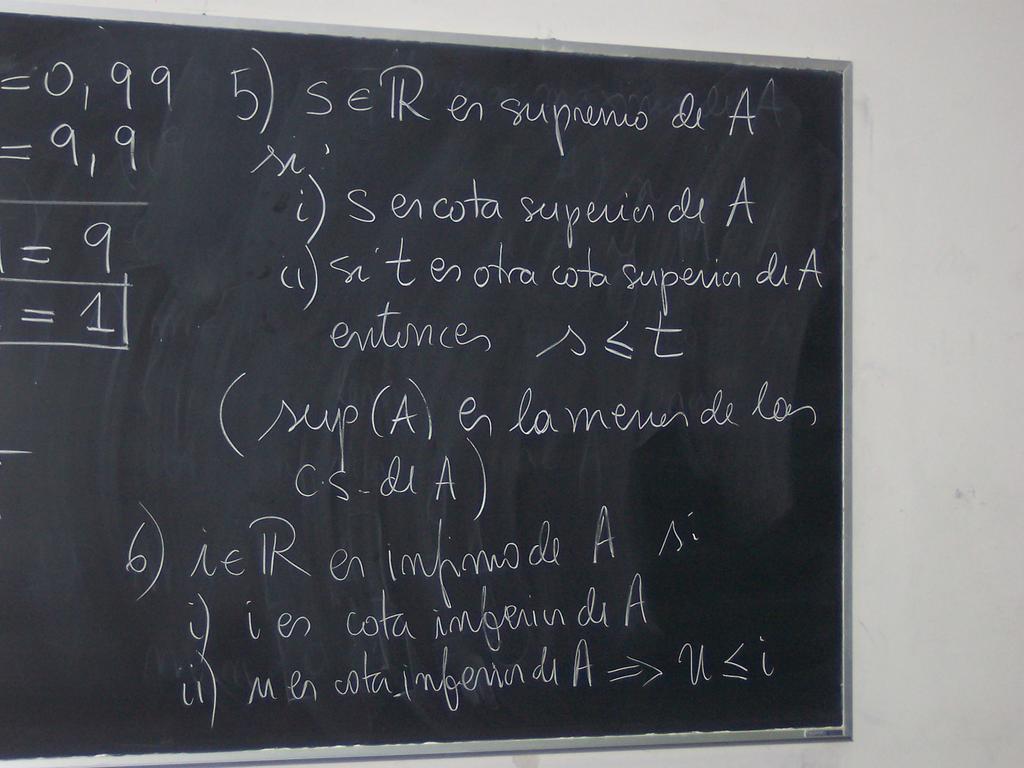 = 0,99
= 9,9
= 9
= 1
5) S ∈ ℝ es supremo de A
si
i) S es cota superior de A
ii) si t es otra cota superior de A
entonces s ≤ t
(sup(A) es la menor de las
c.s. de A)
6) i ∈ ℝ es infimo de A si
i) i es cota inferior de A
ii) u es cota inferior de A ⇒ u ≤ i